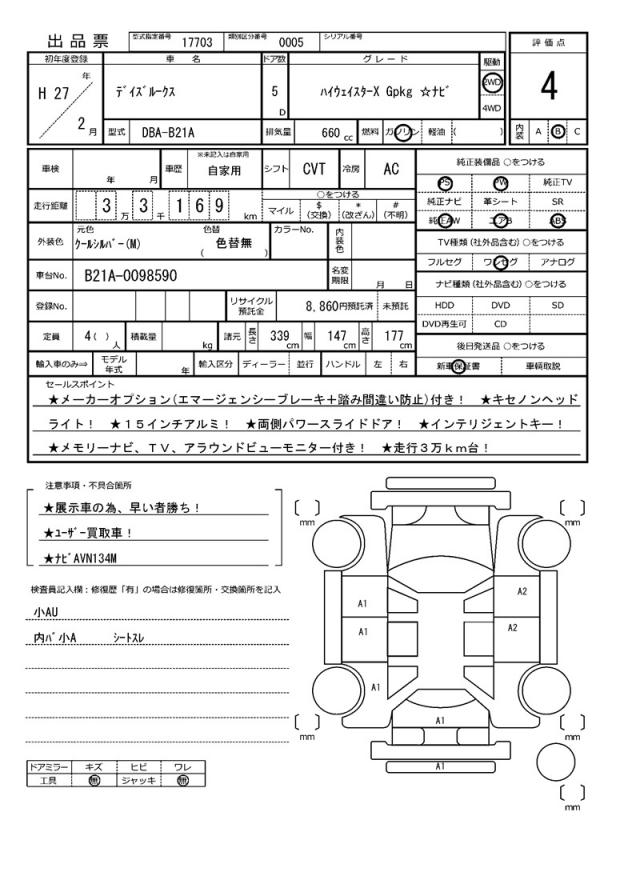 出品票 型式指定番号 17703 類別区分番号 0005 シリアル番号
初年度登録 車名 ドア数 グレード 駆動 評価点
H 27 年 2 月 デイズルークス 5 D ハイウェイスターX Gpkg ☆ナビ 2WD 4WD 4
型式 DBA-B21A 排気量 660 cc 燃料 ガソリン 軽油 ( ) 内装 A B C
車検 年 月 車歴 ※未記入は自家用 自家用 シフト CVT 冷房 AC
純正装備品 ○をつける
PS PW 純正TV
純正ナビ 革シート SR
純正AW エアB ABS
走行距離 3 万 3 千 1 6 9 km ○をつける
マイル $ (交換) * (改ざん) # (不明)
外装色 元色 クールシルバー(M) 色替 色替無 ( ) カラーNo. 内装色
TV種類 (社外品含む) ○をつける
フルセグ ワンセグ アナログ
車台No. B21A-0098590 名変期限 月 日
ナビ種類 (社外品含む) ○をつける
HDD DVD SD
DVD再生可 CD
登録No. リサイクル預託金 8,860円預託済 未預託
定員 4( ) 人 積載量 kg 諸元 長さ 339 cm 幅 147 cm 高さ 177 cm
後日発送品 ○をつける
新車保証書 車輌取説
輸入車のみ⇒ モデル年式 年 輸入区分 ディーラー 並行 ハンドル 左 右
セールスポイント
★メーカーオプション(エマージェンシーブレーキ+踏み間違い防止)付き! ★キセノンヘッド
ライト! ★15インチアルミ! ★両側パワースライドドア! ★インテリジェントキー!
★メモリーナビ、TV、アラウンドビューモニター付き! ★走行3万km台!
注意事項・不具合箇所
★展示車の為、早い者勝ち!
★ユーザー買取車!
★ナビAVN134M
検査員記入欄:修復歴「有」の場合は修復箇所・交換箇所を記入
小AU
内バ小A シートスレ
ドアミラー キズ ヒビ ワレ
工具 無 ジャッキ 無
mm
mm
A1
A2
A1
A2
A1
A1
A1
mm
mm
mm